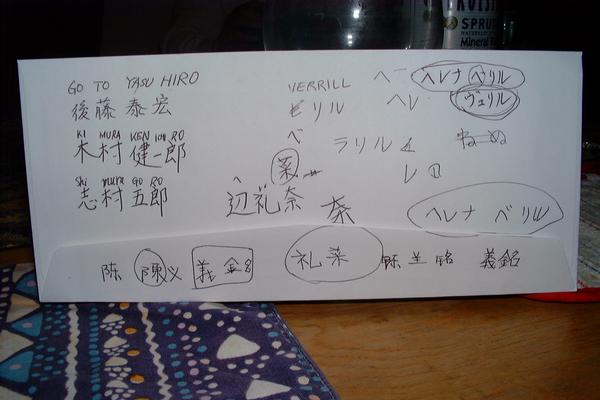 SPRU
Mineral
GO TO YASU HIRO
後藤 泰宏
KI MURA KEN ICHI RO
木村 健一郎
Shi mura GO RO
志村 五郎
VERRILL
ビリル
ベ
ラリル
菜
ヘ
辺礼奈
奈
ヘー
ヘレナ ベリル
ヘレ
ヴェリル
ねーぬ
レ
ヘレナ ベリル
陈 陳义 義 金名 礼菜 陈 兰 铭 義銘